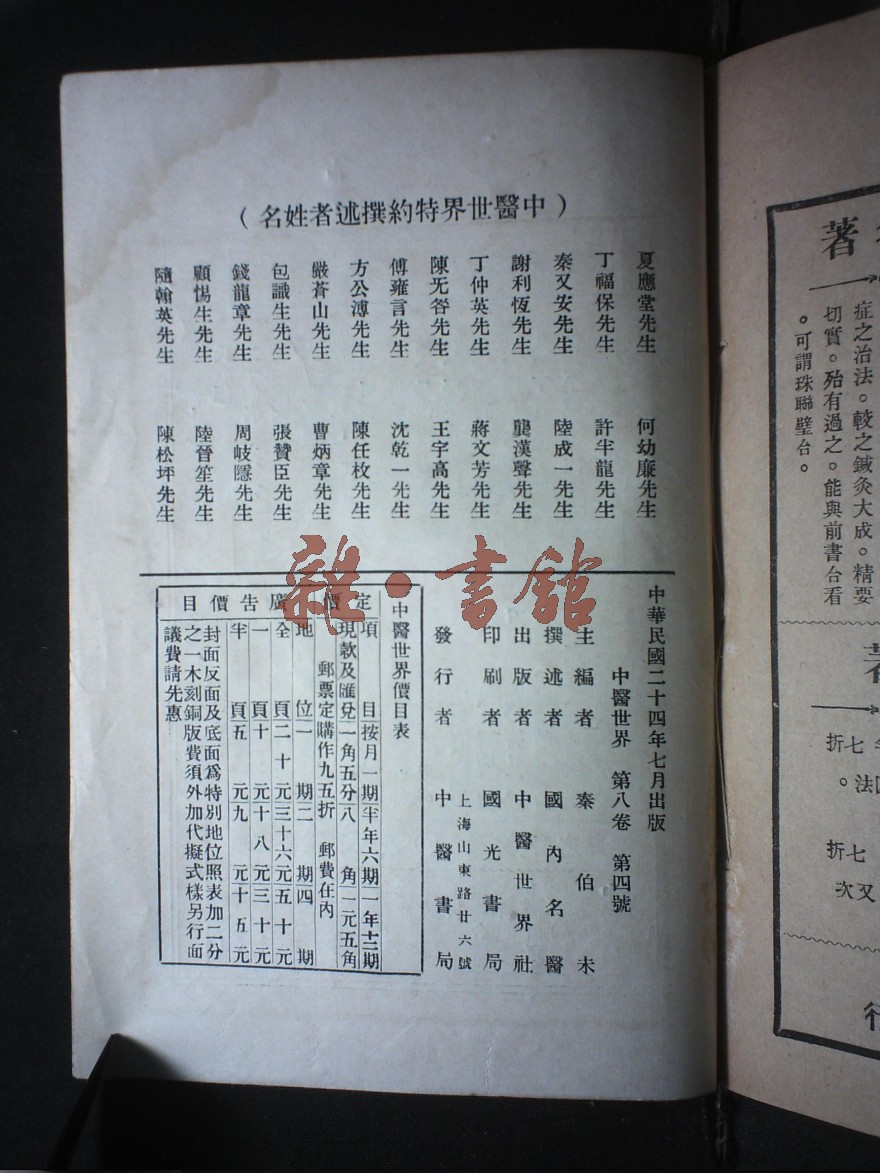 （中醫世界特約撰述者姓名）
夏應堂先生
丁福保先生
秦又安先生
謝利恆先生
丁仲英先生
陳无咎先生
傅雍言先生
方公溥先生
嚴蒼山先生
包識生先生
錢龍章先生
顧惕生先生
隨翰英先生
何幼廉先生
許半龍先生
陸成一先生
龔漢聲先生
蔣文芳先生
王宇高先生
沈乾一先生
陳任枚先生
曹炳章先生
張贊臣先生
周岐隱先生
陸晉笙先生
陳松坪先生
中華民國二十四年七月出版
中醫世界 第八卷 第四號
主編者 秦伯未
撰述者 國內名醫
出版者 中醫世界社
印刷者 國光書局
上海山東路廿六號
發行者 中醫書局
中醫世界價目表
定價
項目 按月一期 半年六期 一年十二期
現款及匯兌 一角五分 八角 一元五角
郵票定購作九五折 郵費在內
廣告價目
地位 一期 二期 四期
全頁 二十元 三十六元 五十元
一頁 十元 十八元 三十元
半頁 五元 九元 十五元
封面反面及底面爲特別地位照表加二分
之一木刻銅版費須外加代擬式樣另行面
議費請先惠
雜·書館
著
症之治法。較之鍼灸大成。精要
切實。殆有過之。能與前書台看
。可謂珠聯璧台。
七折
法。
七折
又次
行